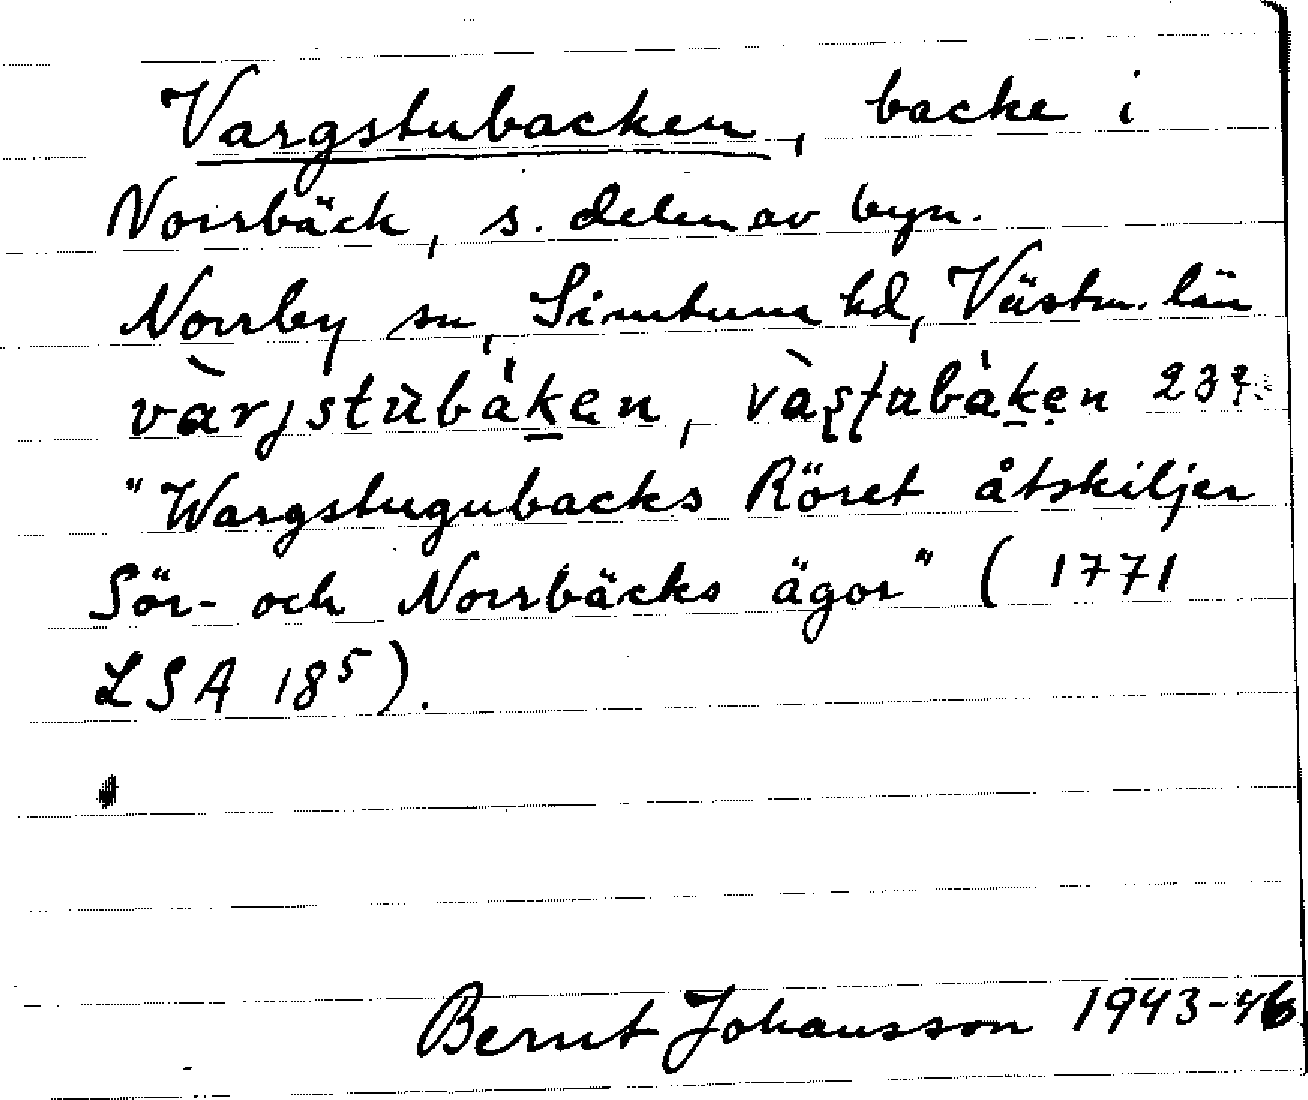 Vargstubacken, backe i
Norrbäck, s. delen av byn.
Norrby sn, Simtuna hd, Västm. län
vàrjstùbàken, vàʂʈubàken 237
"Wargstugubacks Röret åtskiljer
Sör- och Norrbäcks ägor" (1771
LSA 18⁵).
Bernt Johansson 1943-46